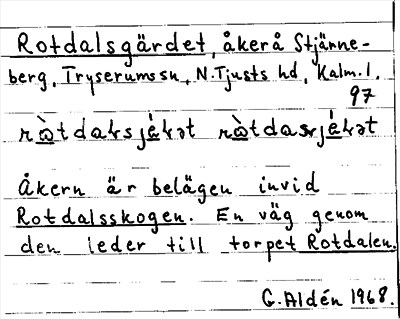 Rotdalsgärdet, åkerå Stjärne-
berg, Tryserumssn, N.Tjusts hd, Kalm.l.
97
Åkern är belägen invid
Rotdalsskogen. En väg genom
den leder till torpet Rotdalen.
G. Aldén 1968.